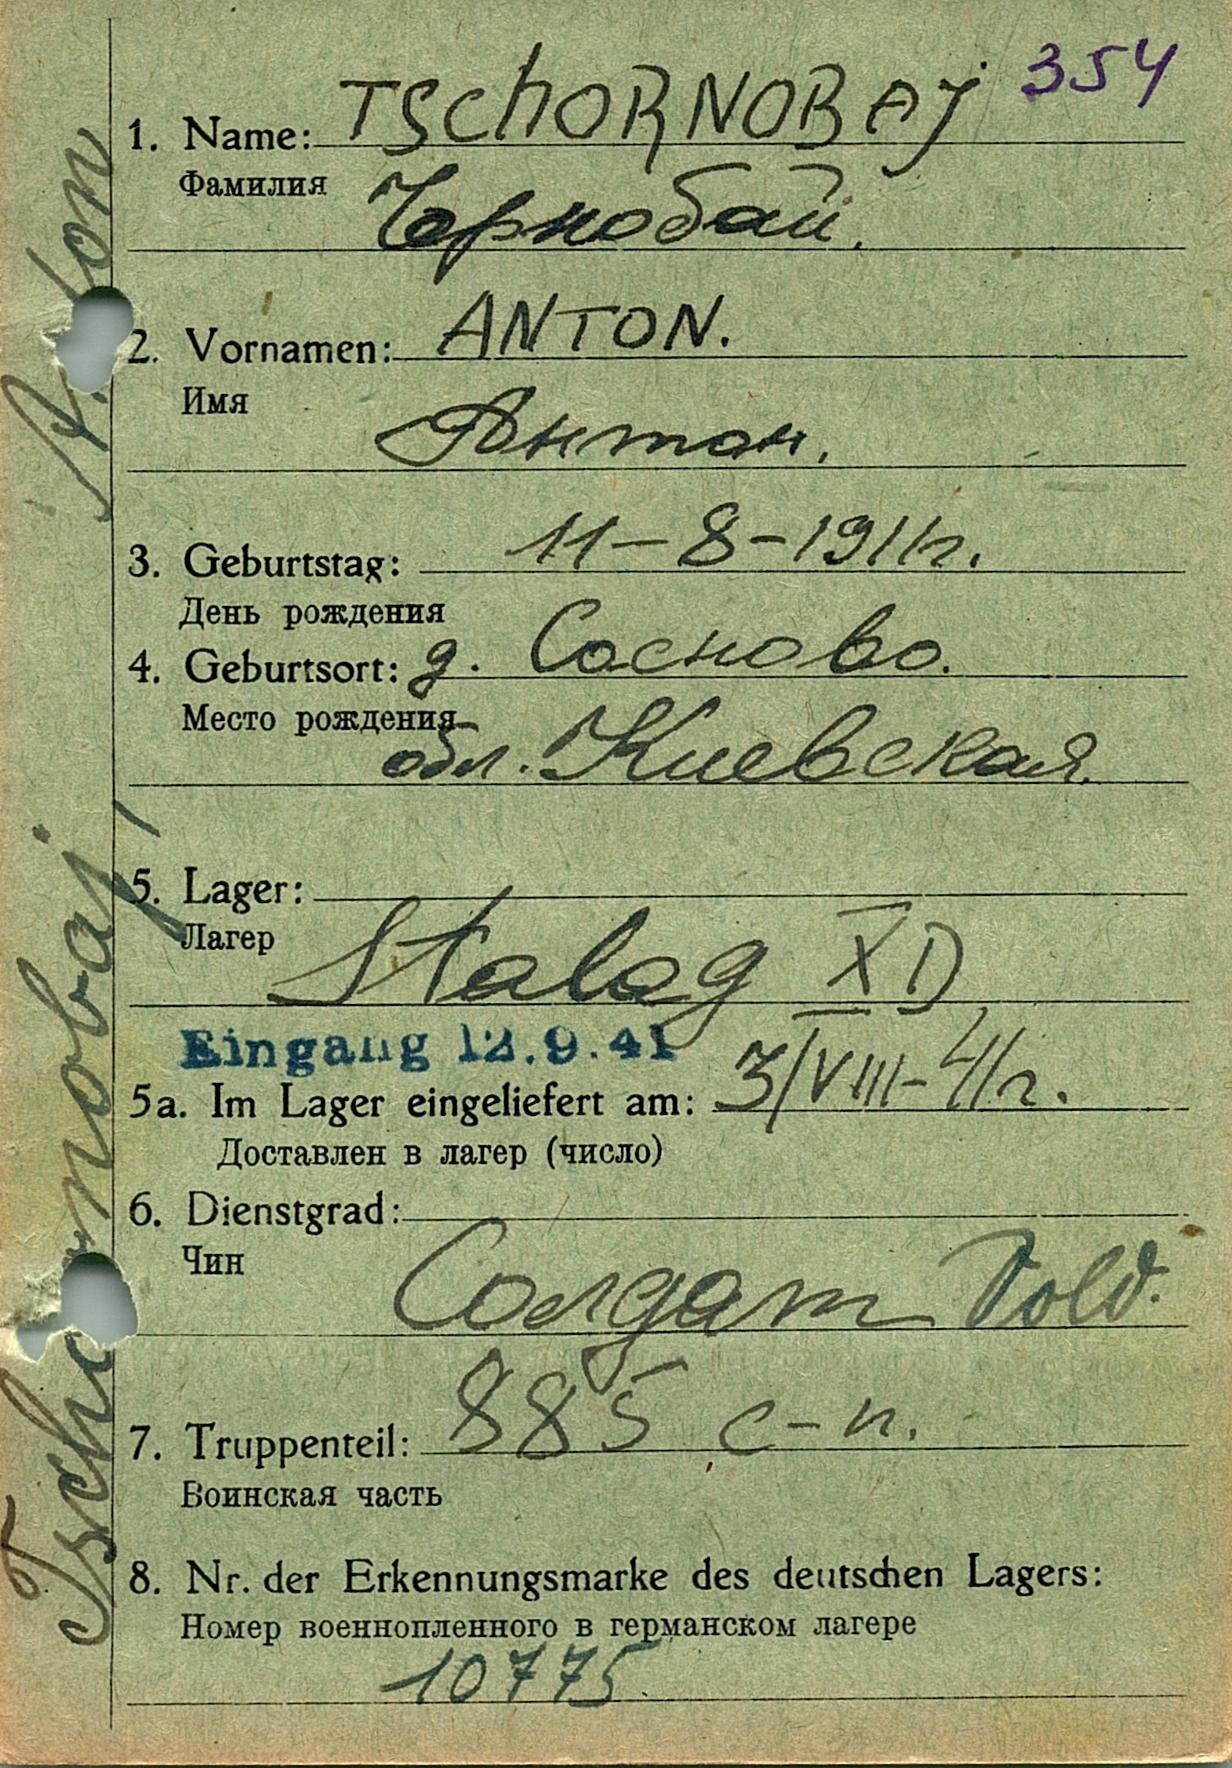 354
1. Name: TSCHORNOBAJ
Фамилия
Чорнобай.
2. Vornamen: ANTON.
Имя
Антон.
3. Geburtstag: 11–8–1911г.
День рождения
4. Geburtsort: д. Сосново.
Место рождения
обл. Киевская.
5. Lager:
Лагер
Stalag XD
Eingang 12.9.41
5a. Im Lager eingeliefert am: 3/VIII–41г.
Доставлен в лагер (число)
6. Dienstgrad:
Чин
Солдат Sold.
7. Truppenteil: 885 с–п.
Воинская часть
8. Nr. der Erkennungsmarke des deutschen Lagers:
Номер военнопленного в германском лагере
10775